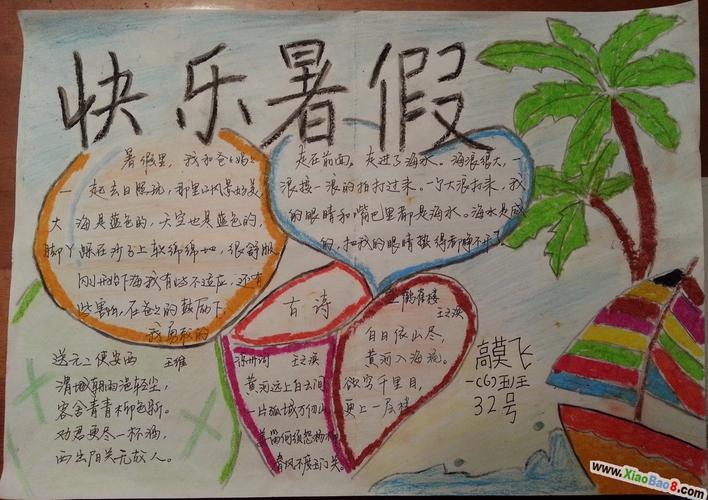 快乐暑假
暑假里，我和爸爸妈妈
一起去日照玩，那里风景好美，
大海是蓝色的，天空也是蓝色的，
脚丫踩在沙子上软绵绵地，很舒服
刚开始下海我有些不适应，还有
些害怕，在爸爸的鼓励下，
我勇敢的
走在前面。走进了海水。海浪很大，一
浪接一浪的拍打过来。一个大浪打来，我
的眼睛和嘴巴里都是海水。海水是咸
的，把我的眼睛
古诗
送元二使安西 王维
渭城朝雨浥轻尘，
客舍青青柳色新。
劝君更尽一杯酒，
西出阳关无故人。
凉州词 王之涣
黄河远上白云间
一片孤城万仞山
羌笛何须怨杨柳
春风不度玉门关。
鹳雀楼
王之涣
白日依山尽，
黄河入海流。
欲穷千里目，
更上一层楼
高莫飞
32号
www.XiaoBao8.com